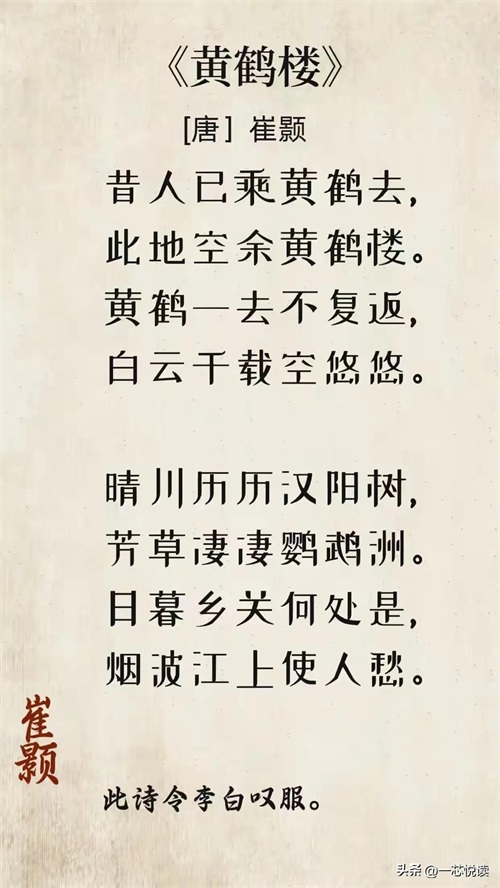 《黄鹤楼》
[唐］崔颢
昔人已乘黄鹤去，
此地空余黄鹤楼。
黄鹤一去不复返，
白云千载空悠悠。
晴川历历汉阳树，
芳草凄凄鹦鹉洲。
日暮乡关何处是，
烟波江上使人愁。
崔颢
此诗令李白叹服。
头条 @一芯悦读